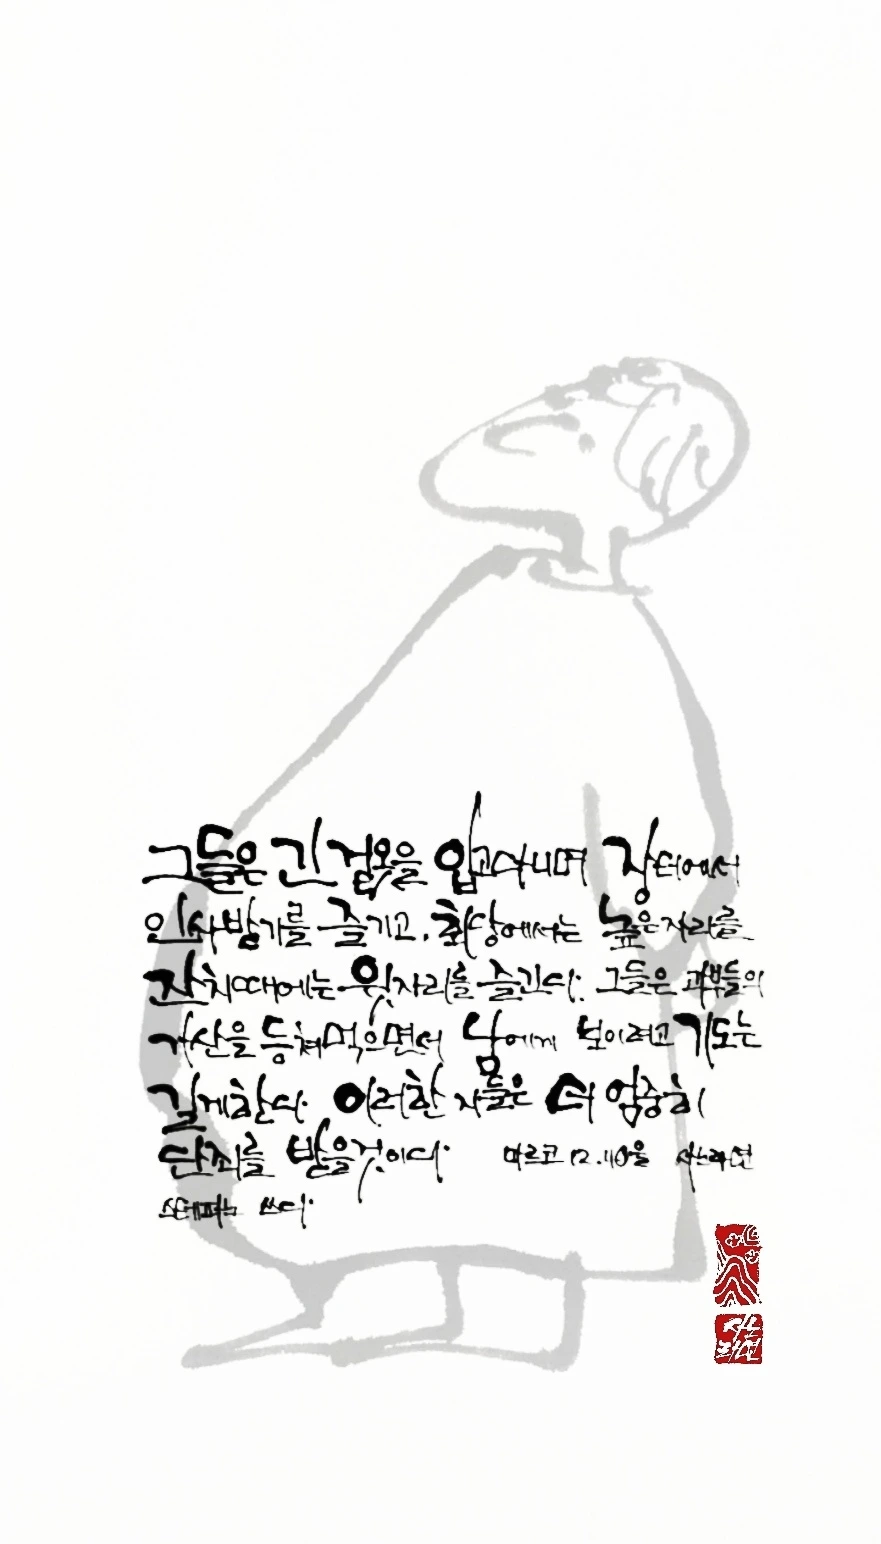 그들은 긴 겉옷을 입고다니며 장터에서
인사받기를 즐기고, 회당에서는 높은자리를
잔치때에는 윗자리를 즐긴다. 그들은 과부들의
가산을 등쳐먹으면서 남에게 보이려고 기도는
길게한다. 이러한 자들은 더 엄중히
단죄를 받을것이다. 마르코 12.
스테파노 쓰다.